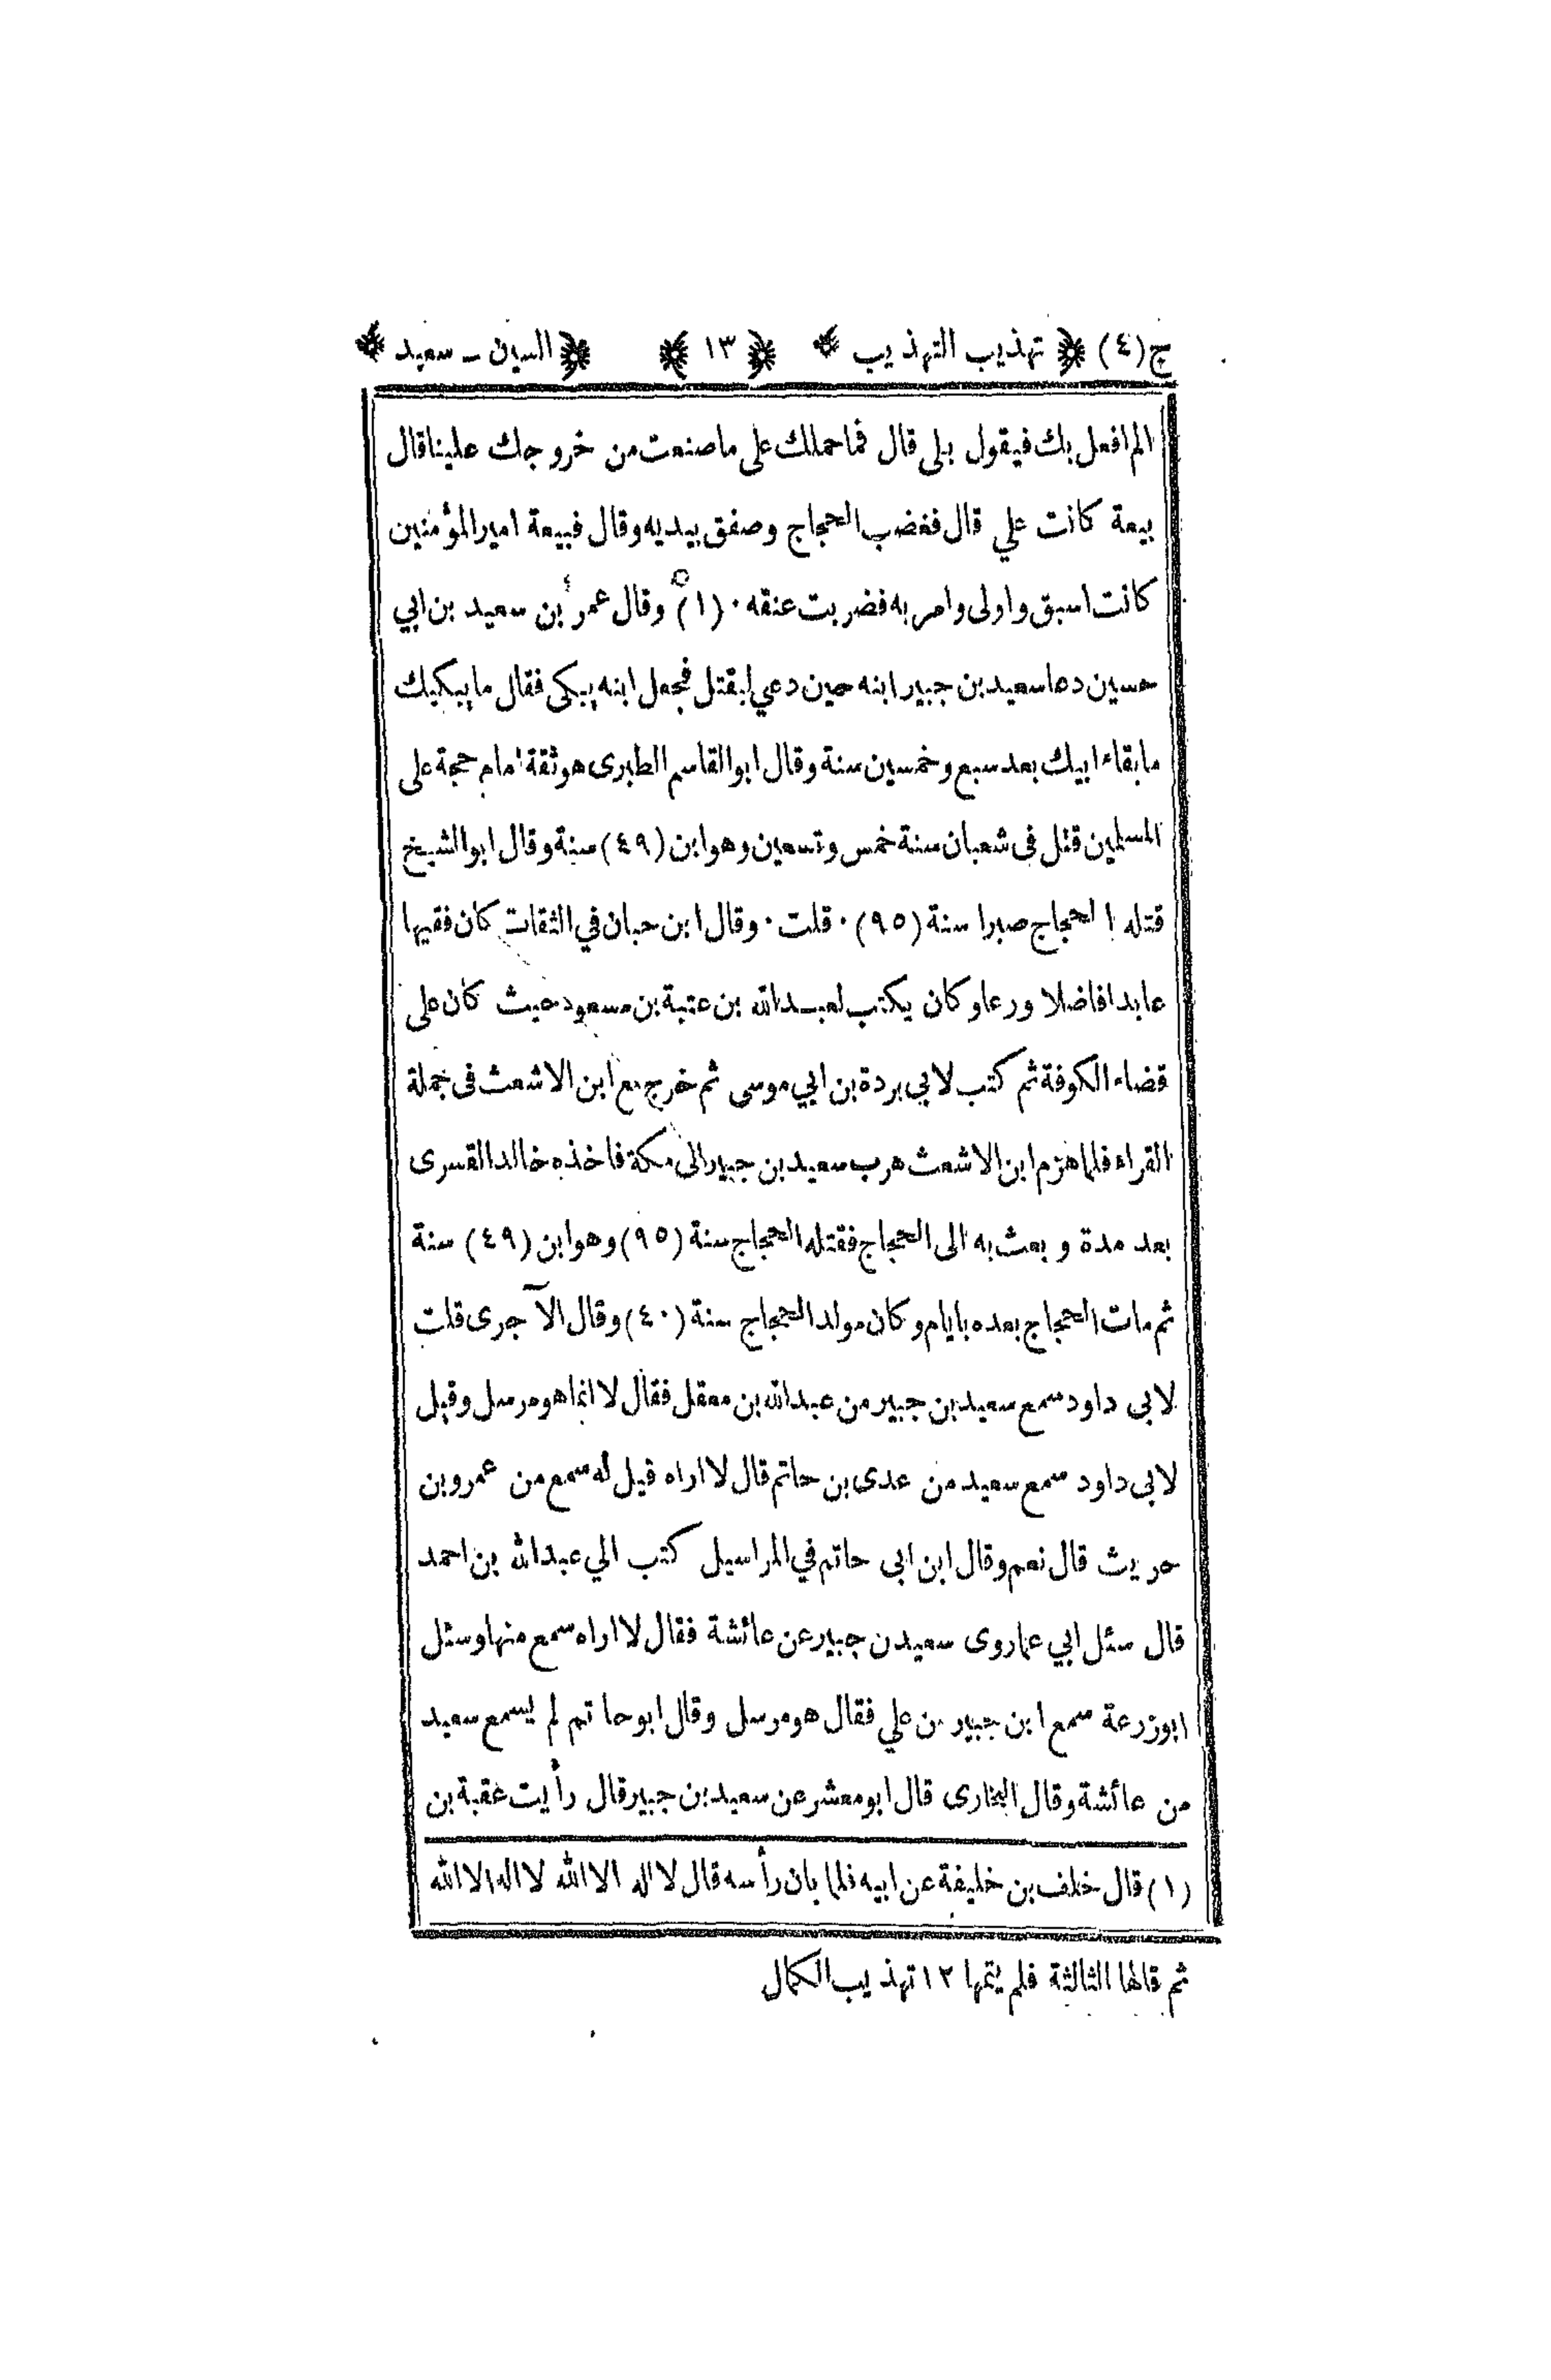 ج(٤) ﴿ تهذيب التهذيب ﴾ ﴿ ١٣ ﴾ ﴿ السين - سعيد ﴾
الم افعل بك فيقول بلى قال فما حملك على ما صنعت من خروجك علينا قال
بيعة كانت علي قال فغضب الحجاج وصفق بيديه وقال فبيعة امير المؤمنين
كانت اسبق واولى وامر به فضربت عنقه . (١) وقال عمر بن سعيد بن ابي
حسين دعا سعيد بن جبير ابنه حين دعي ليقتل فجعل ابنه يبكى فقال ما يبكيك
ما بقاء ابيك بعد سبع وخمسين سنة وقال ابو القاسم الطبرى هو ثقة امام حجة على
المسلمين قتل فى شعبان سنة خمس وتسعين وهو ابن (٤٩) سنة وقال ابو الشيخ
قتله الحجاج صبرا سنة (٩٥) . قلت . وقال ابن حبان في الثقات كان فقيها
عابدا فاضلا ورعا وكان يكتب لعبد الله بن عتبة بن مسعود حيث كان على
قضاء الكوفة ثم كتب لابي بردة بن ابي موسى ثم خرج مع ابن الاشعث فى جملة
القراء فلما هزم ابن الاشعث هرب سعيد بن جبير الى مكة فاخذه خالد القسرى
بعد مدة وبعث به الى الحجاج فقتله الحجاج سنة (٩٥) وهو ابن (٤٩) سنة
ثم مات الحجاج بعده بايام وكان مولد الحجاج سنة (٤٠) وقال الآجرى قلت
لابى داود سمع سعيد بن جبير من عبد الله بن معقل فقال لا انما هو مرسل وقيل
لابى داود سمع سعيد من عدى بن حاتم قال لا اراه قيل له سمع من عمرو بن
حريث قال نعم وقال ابن ابى حاتم في المراسيل كتب الي عبد الله بن احمد
قال سئل ابي عما روى سعيد ن جبير عن عائشة فقال لا اراه سمع منها وسئل
ابوزرعة سمع ابن جبير من علي فقال هو مرسل وقال ابو حاتم لم يسمع سعيد
من عائشة وقال البخارى قال ابو معشر عن سعيد بن جبير قال رأيت عقبة بن
(١) قال خلف بن خليفة عن ابيه فلما بان رأسه قال لا اله الا الله لا اله الا الله
ثم قالها الثالثة فلم يتمها ١٢ تهذيب الكمال